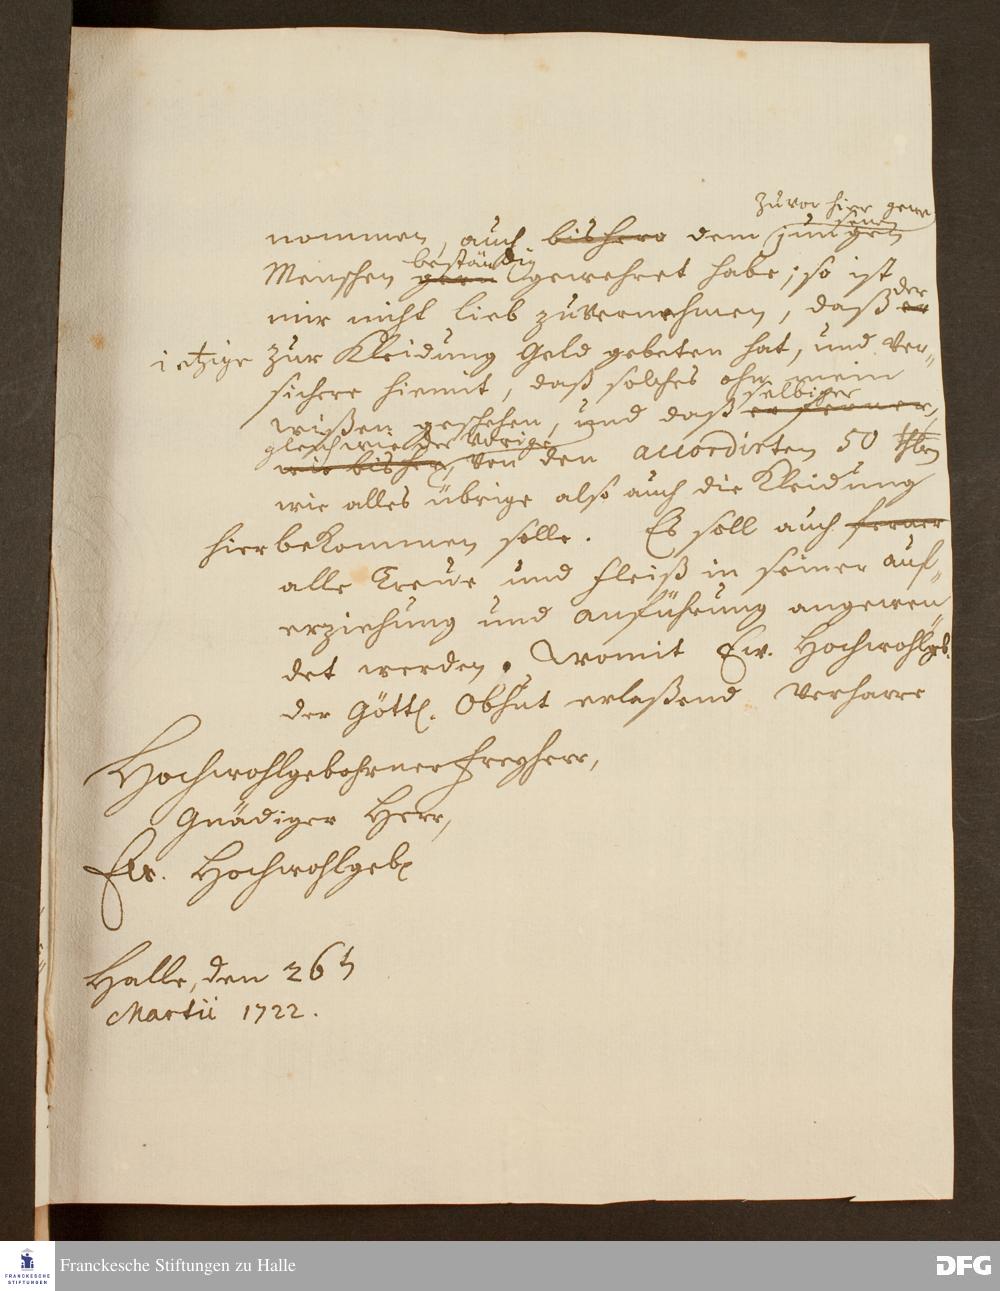 zuvor hier gewe
senen
nommen, auch bishero dem jungen
beständig
Menschen gern gewehret habe; so ist
mir nicht lieb zuvernehmen, daß er der
ietzige zur Kleidung Geld gebeten hat, und ver„
sichere hiemit, daß solches ohn mein
selbiger
wißen geschehen, und daß er ferner,
gleichwie der Vorige
wie bisher, von den accordirten 50 Thlrn
wie alles übrige also auch die Kleidung
hier bekommen solle. Es soll auch ferner
alle Treue und Fleiß in seiner auf„
erziehung und anführung angewen„
det werden. Womit Ew. Hochwohlgeb.
der Göttl. Obhut erlaßend verharre
Hochwohlgebohrner Freyherr,
Gnädiger Herr,
Ew. Hochwohlgeb
Halle, den 26t
Martii 1722.
Franckesche Stiftungen zu Halle
FRANCKESCHE
STIFTUNGEN
DFG